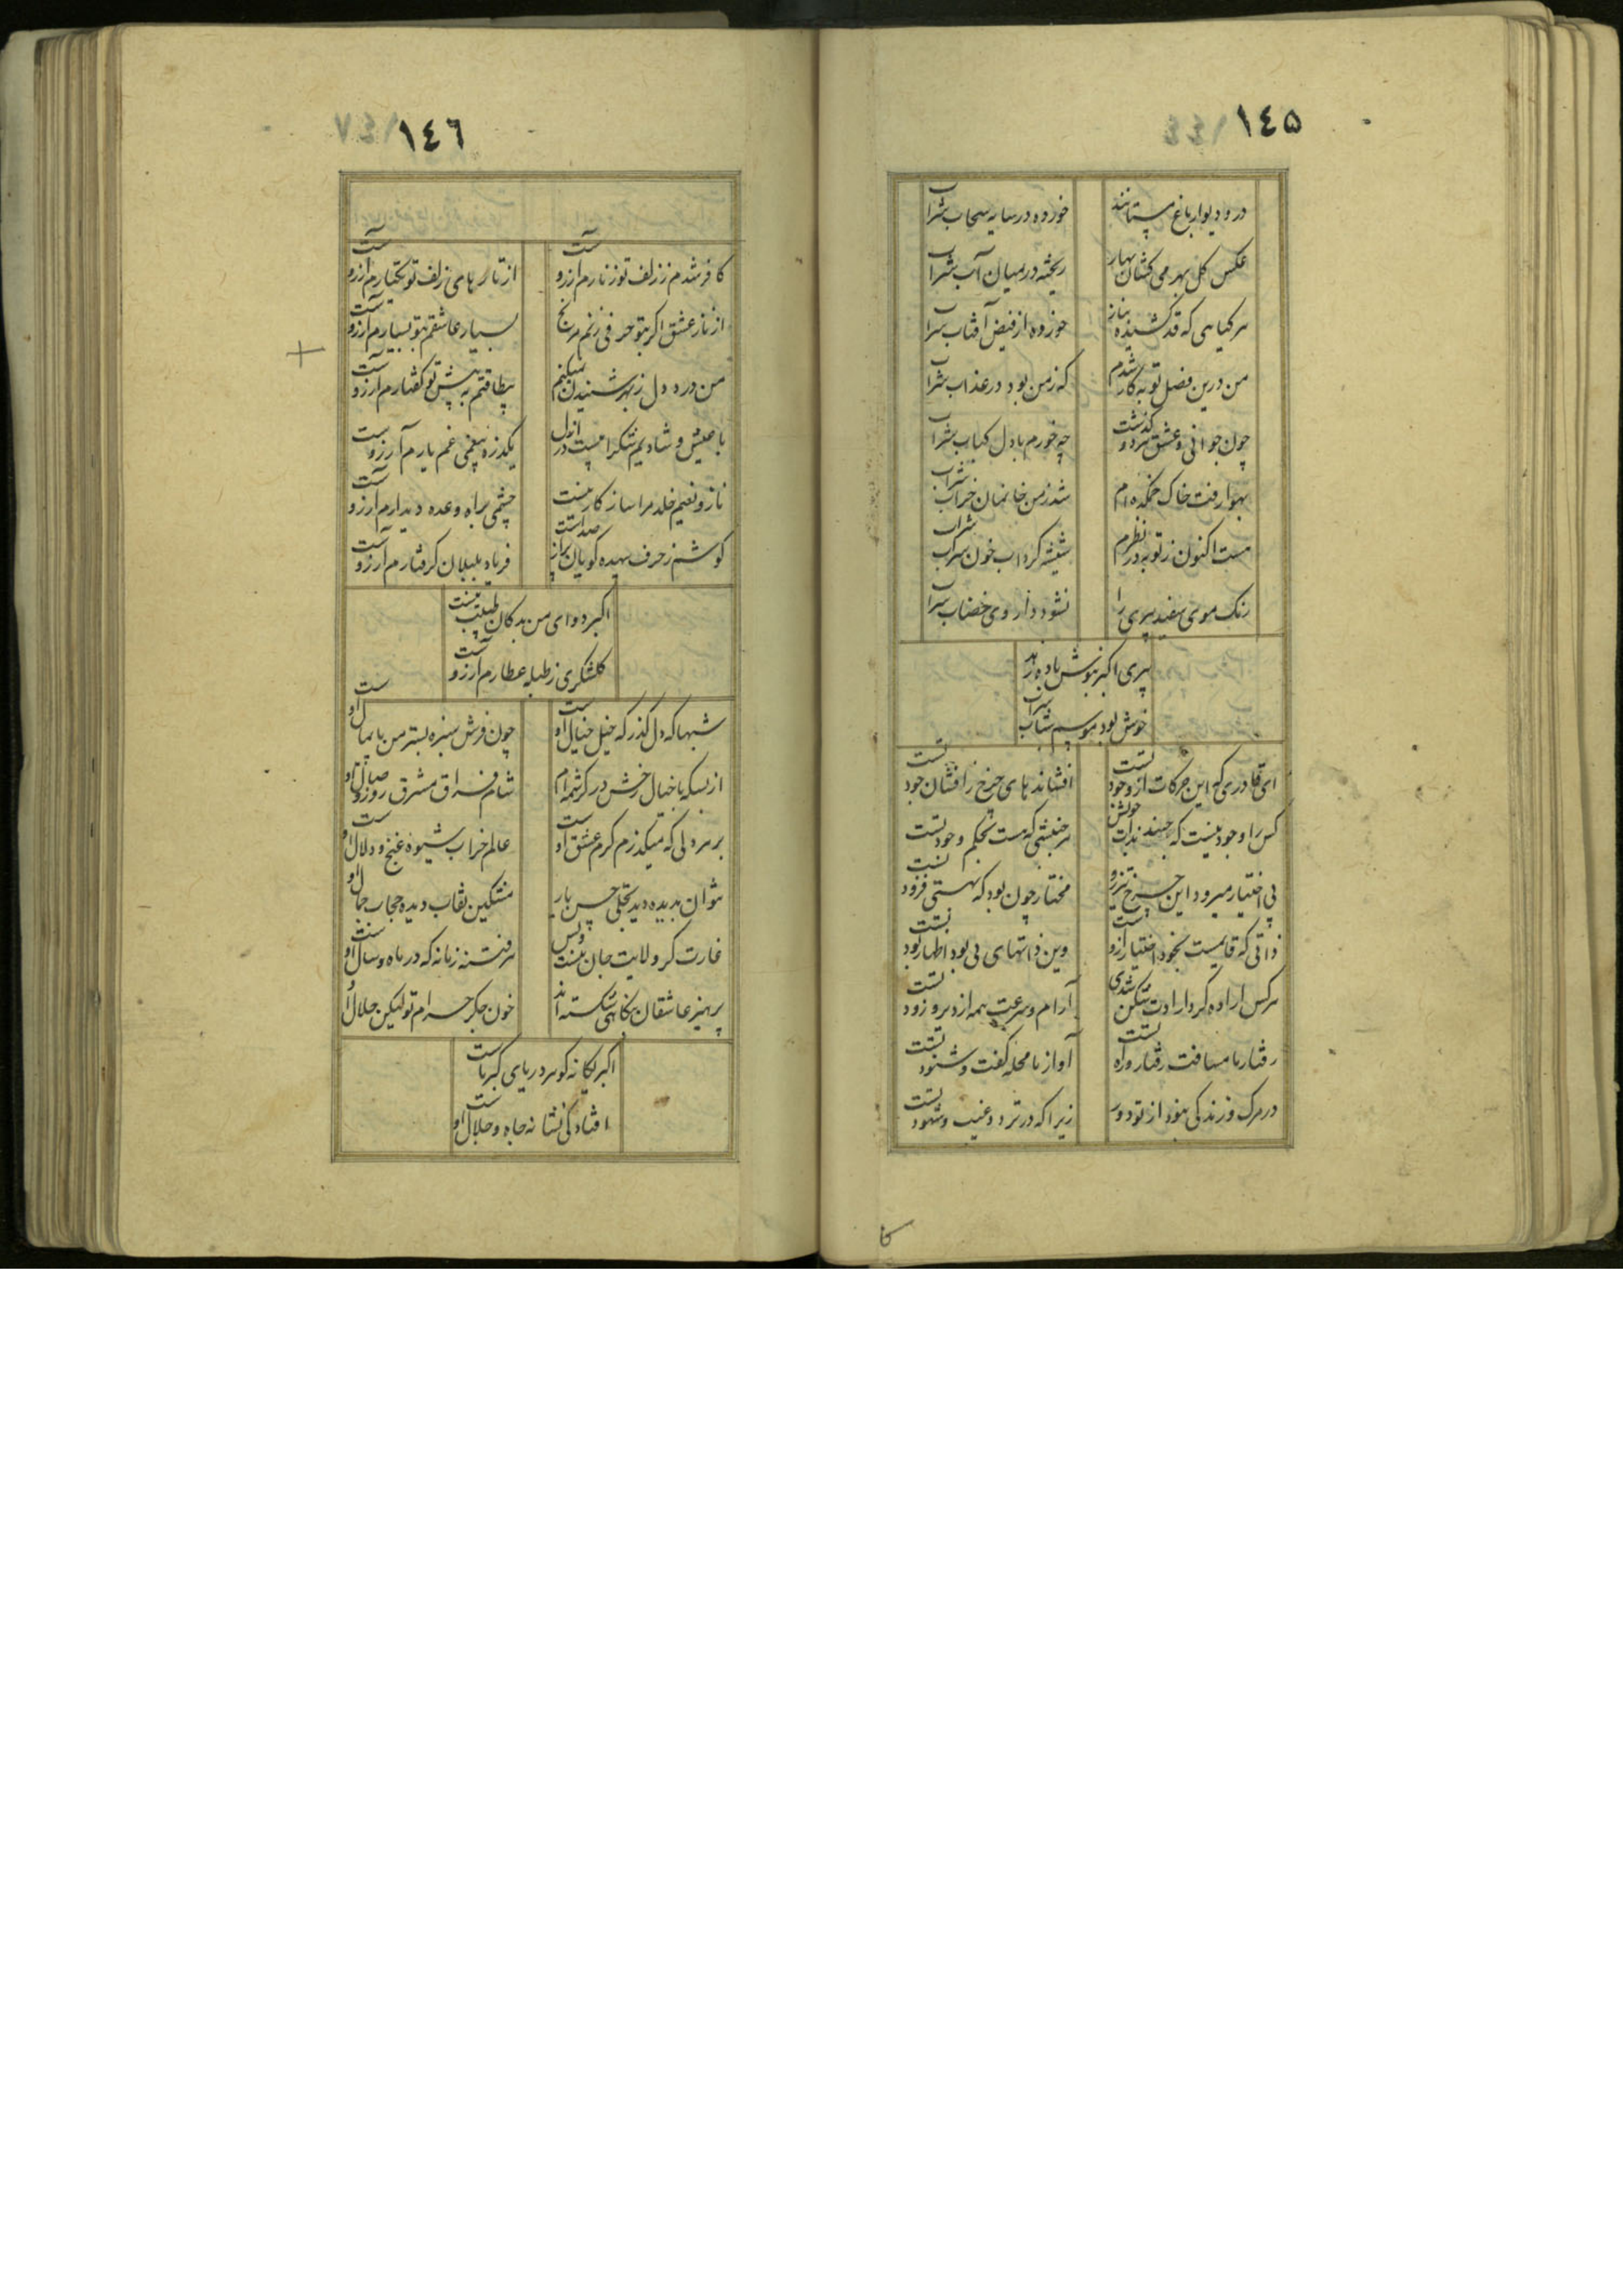 ١٤٥
در و دیوار باغ مستانند
خورده در سایه سحاب شراب
عکس کل بهر می کشان بهار
ریخته در میان آب شراب
هر کیاهی که قد کشیده بناز
خورده از فیض آفتاب شراب
من درین فصل توبه کار شدم
که ز من بود در عذاب شراب
چون جوانی و عشق هر دو کذشت
چه خورم با دل کباب شراب
بهوا رفت خاک خمکده ام
شد ز من خانمان خراب شراب
هست اکنون ز توبه در نظرم
شیشه کرداب خون سراب شراب
رنک موی سفید پیری را
نشود داروی خضاب شراب
پیری اکبر بنوش باده زهد
خوش بود موسم شباب شراب
ای قادری که این حرکات از وجود تست
افشاندهای چرخ زر افشان جود تست
کس را وجود نیست که جنبد بذات خویش
هر جنبشی که هست بحکم وجود تست
بی اختیار میرود این چرخ تیزرو
مختار چون بود که بهستی فزود تست
ذاتی که قایمست بخود اختیار ازوست
وین ذاتهای بی بود اظهار بود تست
هر کس اراده کرد ارادت شکن شدی
آرام و سرعت همه از دیر و زود تست
رفتار با مسافت رفتار و راه تست
آواز با محله کفت و شنود تست
در مرک و زندکی نبود از تو دور
زیرا که در تردد و غیب و شهود تست
١٤٦
کافر شدم ز زلف تو زنارم آرزوست
از تارهای زلف تو یکتارم آرزوست
از ناز عشق اکر بتو حرفی زنم مرنج
بسیار عاشقم بتو بسیارم آرزوست
من درد دل ز بهر شنیدن نمیکنم
بیطاقتم به پیش تو کفتارم آرزوست
با عیش و شادیم شکرابیست در ازل
یکذره بیغمی غم یارم آرزوست
ناز و نعیم خلد مرا ساز کار نیست
چشمی براه وعده دیدارم آرزوست
کوشم ز حرف بیهده کویان پر از صداست
فریاد بلبلان کرفتارم آرزوست
اکبر دوای من بدکان طبیب نیست
کلشکری ز طبله عطارم آرزوست
شبها که دل کذر که خیل خیال اوست
چون فرش سبزه بستر من پایمال اوست
از بسکه با خیال رخش در کرشمه ام
شام فراق مشرق روز وصال اوست
بر هر دلی که میکذرم کرم عشق اوست
عالم خراب شیوه غنج و دلال اوست
نتوان بدیده دید تجلی حسن یار
مشکین نقاب دیده حجاب جمال اوست
غارت کر ولایت جان نیست و بس
هر فتنه زمانه که در ماه و سال اوست
پرهیز عاشقان بنکاهی شکسته اند
خون جکر حرام تو لیکن حلال اوست
اکبر یکانه کوهر دریای کبریاست
افتادکی نشانه جاه و جلال اوست